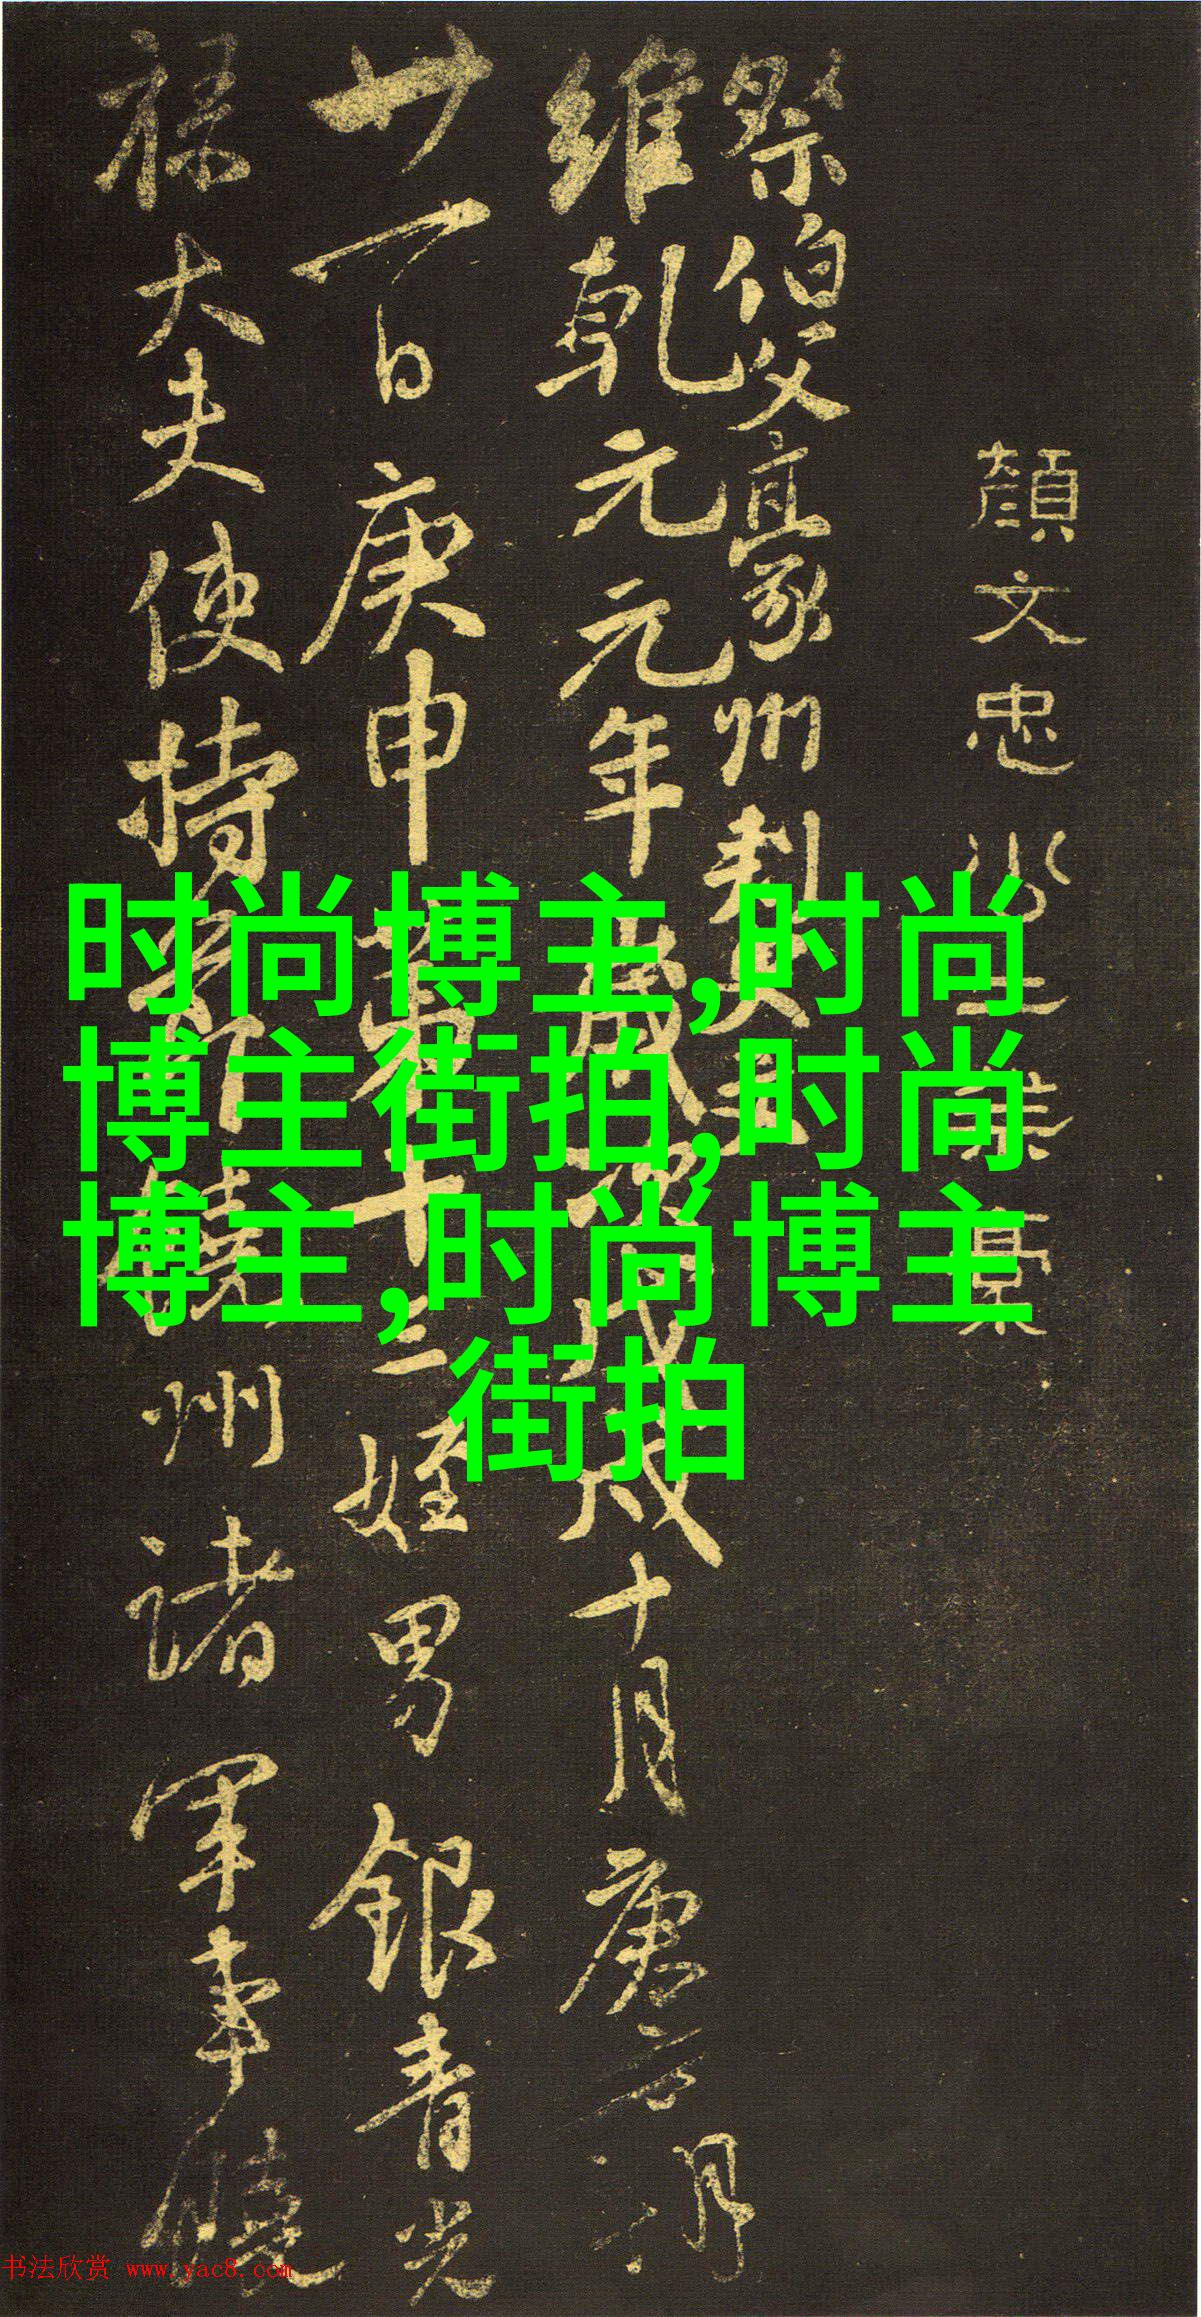 顏文忠公
祭伯父豪州刺史文
維乾元元年歲次戊戌十月庚寅朔
廿一日庚申第十三姪男銀青光
祿大夫使持節饒州諸軍事饒
时尚博主,时尚
博主街拍,时尚
博主,时尚博主
街拍
书法欣赏 www.yac8.com